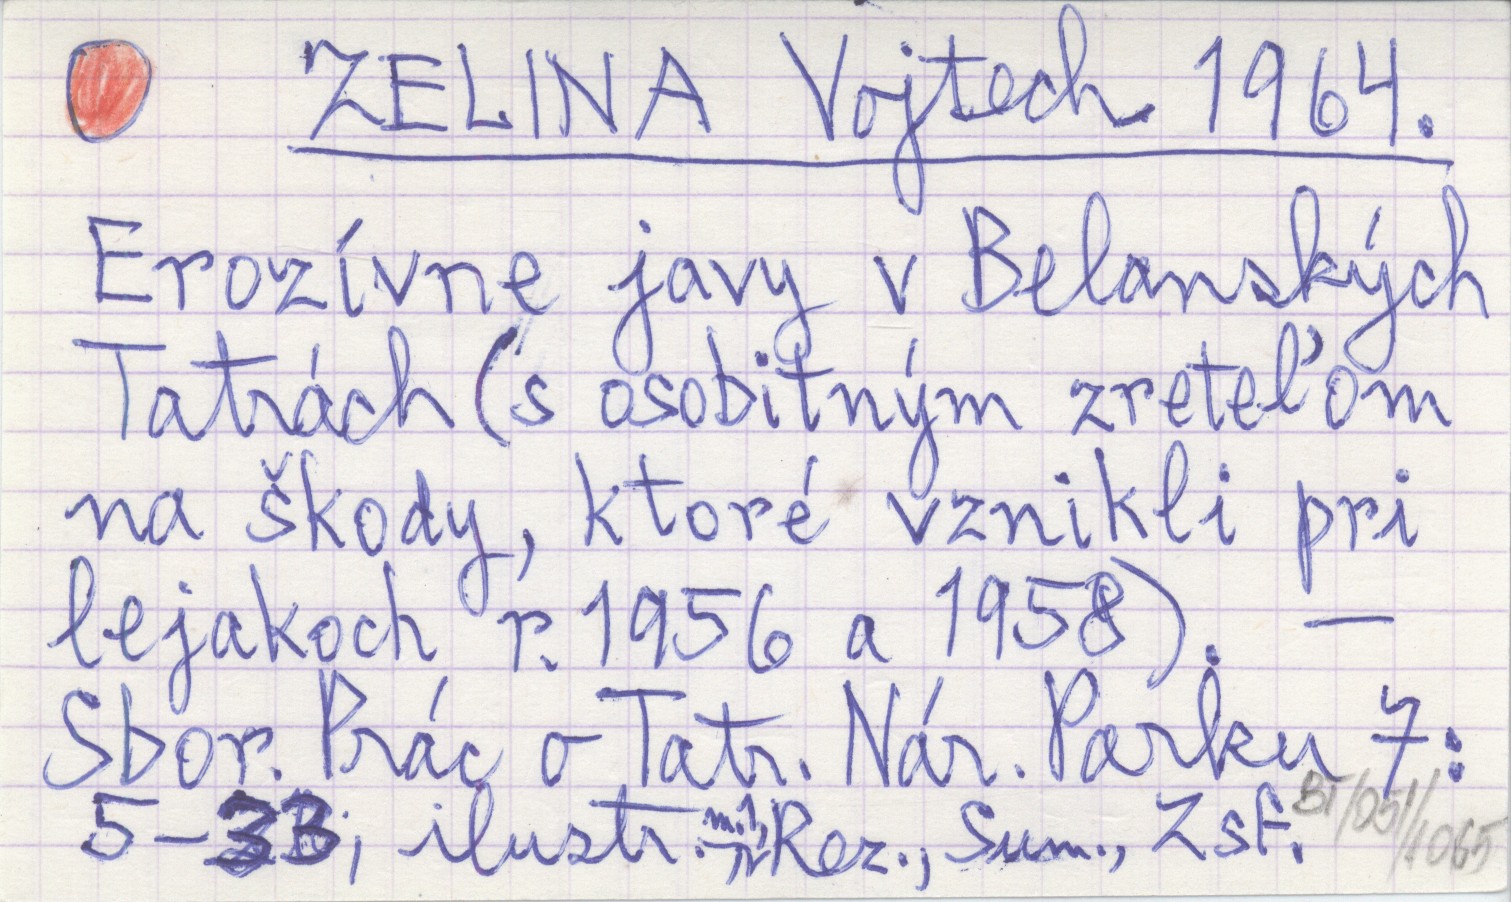 ZELINA Vojtech 1964.
Erozívne javy v Belanských
Tatrách (s osobitným zreteľom
na škody, ktoré vznikli pri
lejakoch r. 1956 a 1958). —
Sbor. Prác o Tatr. Nár. Parku 7:
5-33; ilustr. Rez., Sum., Zsf.